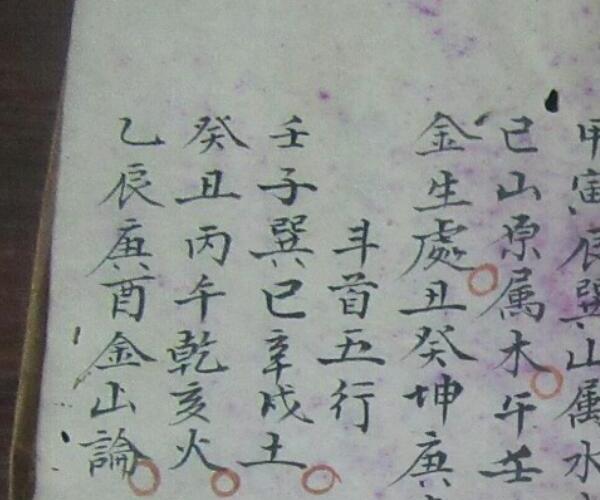 甲寅辰巽山属水
己山原属木午壬
金生處丑癸坤庚
斗首五行
壬子巽巳辛戌土
癸丑丙午乾亥火
乙辰庚酉金山論